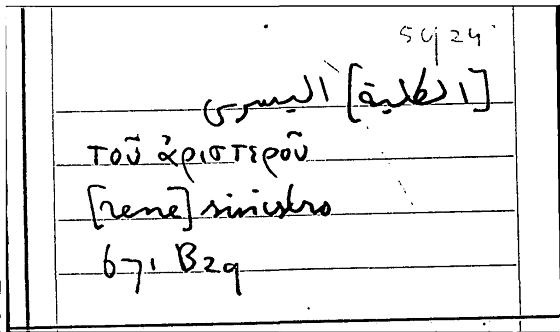 [الكلية] اليسرى
τοῦ ἀριστεροῦ
[rene] sinistro
671 B29